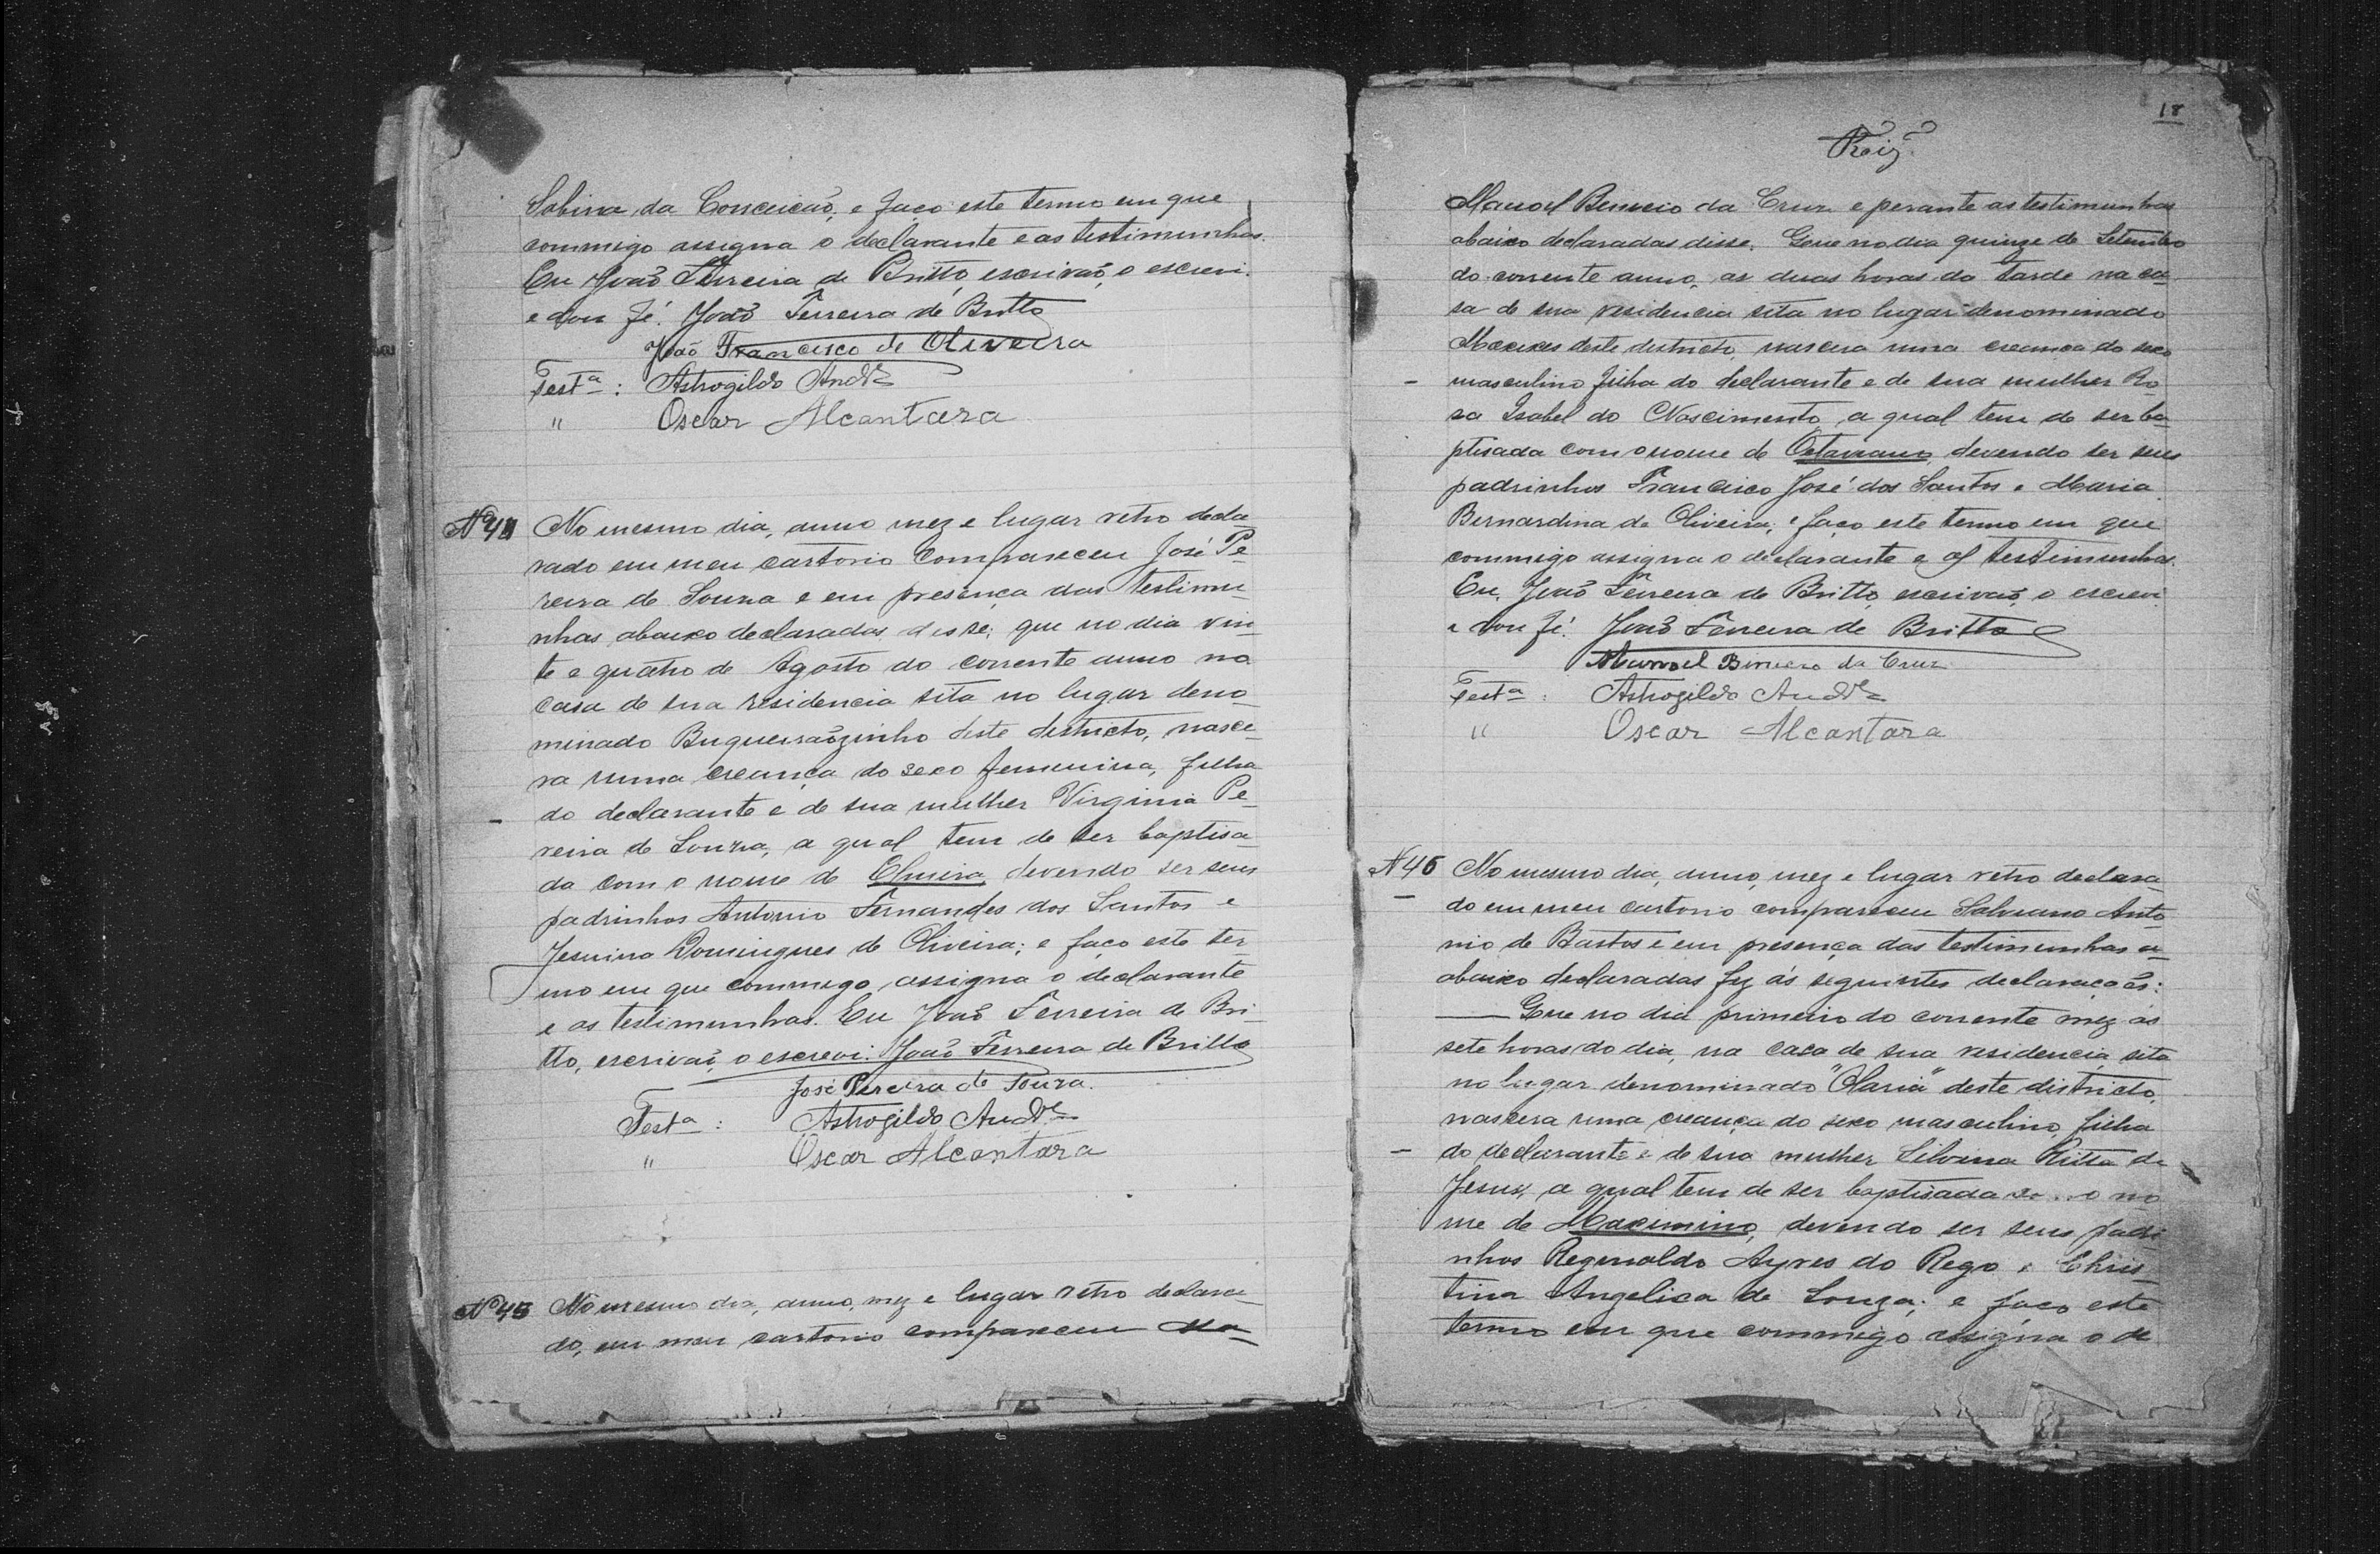 Sabina da Conceicão, e faço este termo em que
commigo assigna o declarante e as testimunhas.
Eu João Ferreira de Britto, escrivão, o escrevi.
e dou fé. João Ferreira de Britto
João Francisco de Oliveira
Testa : Astrogildo
" Oscar Alcantara
No mesmo dia, anno mez e lugar retro decla-
rado em meu cartorio compareceu José Pe-
reira de Souza e em presença das testimu-
nhas abaixo declaradas disse; que no dia vin-
te e quatro de Agosto do corrente anno na
casa de sua residencia sita no lugar deno-
minado Buqueirãozinho deste districto, nasce-
ra uma creança do sexo femenina, filha
do declarante e de sua mulher Virginia Pe-
reira de Souza, a qual tem de ser baptisa-
da com o nome de devendo ser seus
padrinhos Antonio Fernandes dos Santos e
Jesuina Domingues de Oliveira; e faço este ter
mo em que commigo assigna o declarante
e as testimunhas. Eu João Ferreira de Bri-
tto, escrivão, o escrevi. João Ferreira de Britto
José Pereira de Souza.
Testa : Astrogildo
" Oscar Alcantara
Nº 45 No mesmo dia, anno, mez e lugar retro declara-
do, em meu cartorio compareceu Ma-
18
Manoel da Cruz e perante as testimunhas
abaixo declaradas disse. Que no dia quinze de Setembro
do corrente anno, as duas horas da tarde na ca-
sa de sua residencia sita no lugar denominado
deste districto, nascera uma creança do sexo
masculino filha do declarante e de sua mulher Ro-
sa Isabel do Nascimento, a qual tem de ser ba-
ptisada com o nome de Octaviano, devendo ser seus
padrinhos Francisco José dos Santos e Maria
Bernardina de Oliveira, e faço este termo em que
commigo assigna o declarante e as testimunhas.
Eu, João Ferreira de Britto, escrivão, o escrevi
e dou fé. João Ferreira de Britto
Manoel da Cruz
Testa : Astrogildo
" Oscar Alcantara
N 46 No mesmo dia, anno, mez e lugar retro declara-
do em meu cartorio compareceu Anto
nio de Bastos e em presença das testimunhas a-
abaixo declaradas fez as seguintes declaraçoãs:
— Que no dia primeiro do corrente mez as
sete horas do dia, na casa de sua residencia sita
no lugar denominado "Olaria" deste districto,
nascera uma creança do sexo masculino, filha
do declarante e de sua mulher Silvana Ritta de
Jesus, a qual tem de ser baptisada o no
me de Maximino, devendo ser seus padri
nhos Reginaldo Ayres do Rego e Chris
tina Angelica de Souza; e faço este
termo em que commigo assigna o de